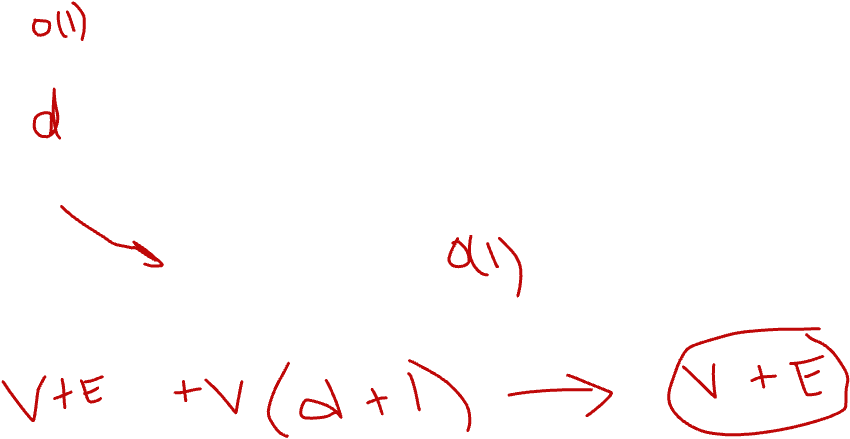 O(1)
d
O(1)
V+E +V(d+1) → V+E